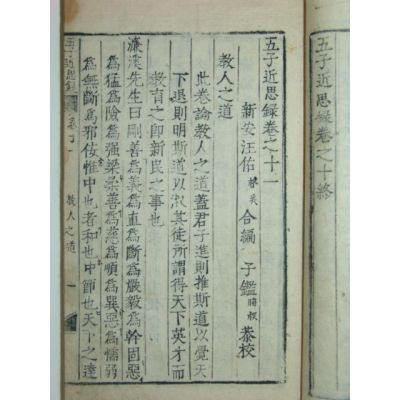 五子近思録卷之十終
五子近思録卷之十一
新安汪佑 合編 子鑑 叅校
教人之道
此卷論教人之道蓋君子進則推斯道以覺天
下退則明斯道以淑其徒所謂得天下英才而
教育之即新民之事也
濂溪先生曰剛善為義為直為斷為嚴毅為幹固惡
為猛為隘為强梁柔善為慈為順為巽惡為懦弱
為無斷為邪佞惟中也者和也中節也天下之達
五子近思録 卷十一 教人之道 一